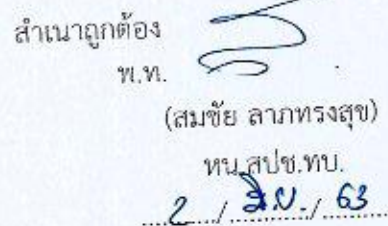 สำเนาถูกต้อง
พ.ท.
(สมชัย ลาภทรงสุข)
หน.สปช.ทบ.
2 / มิ.ย. / 63